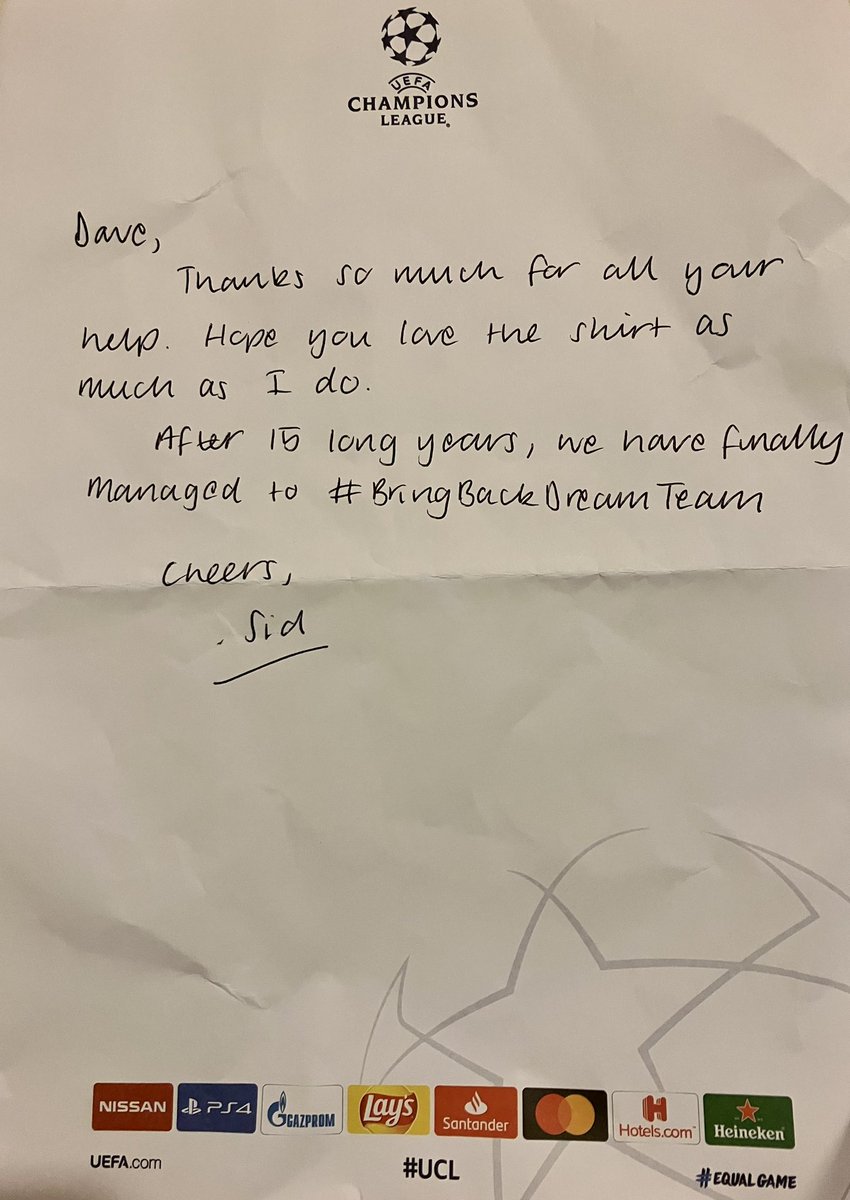 UEFA
CHAMPIONS
LEAGUE®
Dave,
Thanks so much for all your
help. Hope you love the shirt as
much as I do.
After 15 long years, we have finally
managed to #BringBackDreamTeam
Cheers,
Sid
NISSAN PS4 GAZPROM Lay's Santander Hotels.com Heineken
UEFA.com #UCL #EQUALGAME